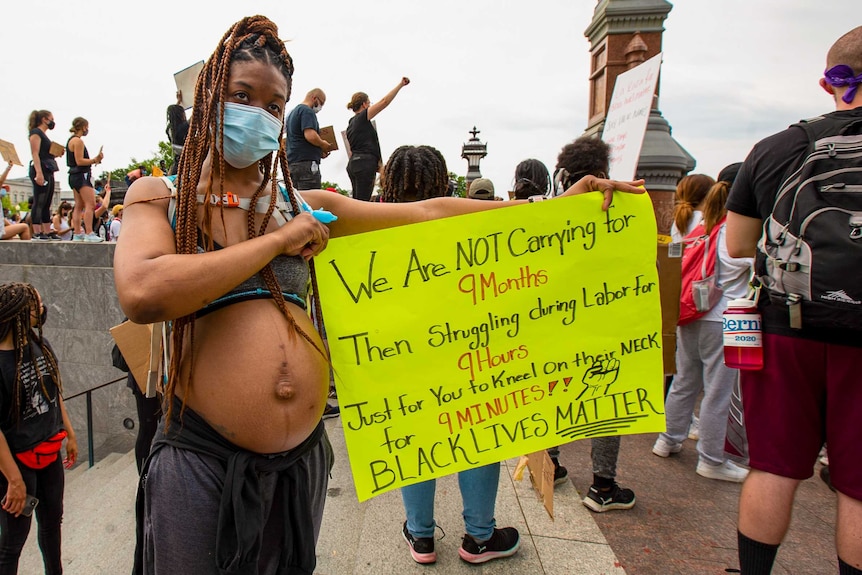 We Are NOT Carrying for
9 Months
Then Struggling during Labor for
9 Hours
Just for You to Kneel On their NECK
for 9 MINUTES!!!!
BLACK LIVES MATTER
Bernie
2020